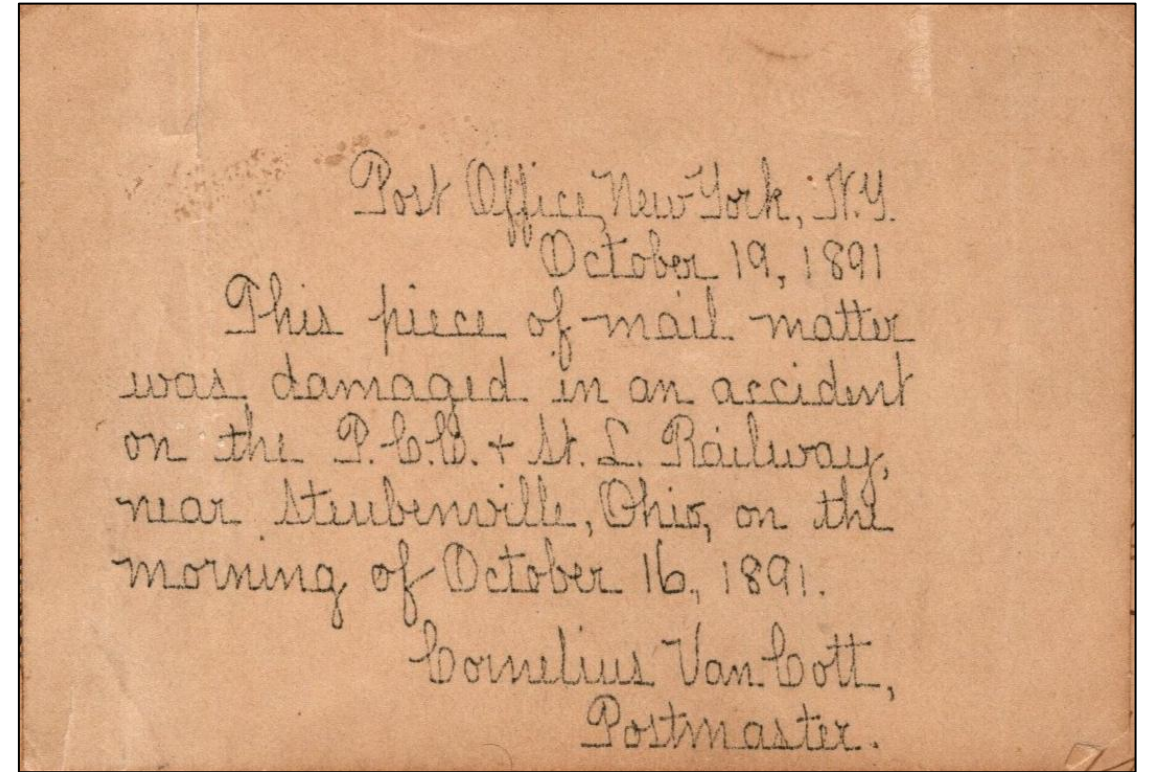 Post Office, New York, N.Y.
October 19, 1891
This piece of mail matter
was damaged in an accident
on the P. C. C. + St. L. Railway,
near Steubenville, Ohio, on the
morning of October 16, 1891.
Cornelius Van Cott,
Postmaster.